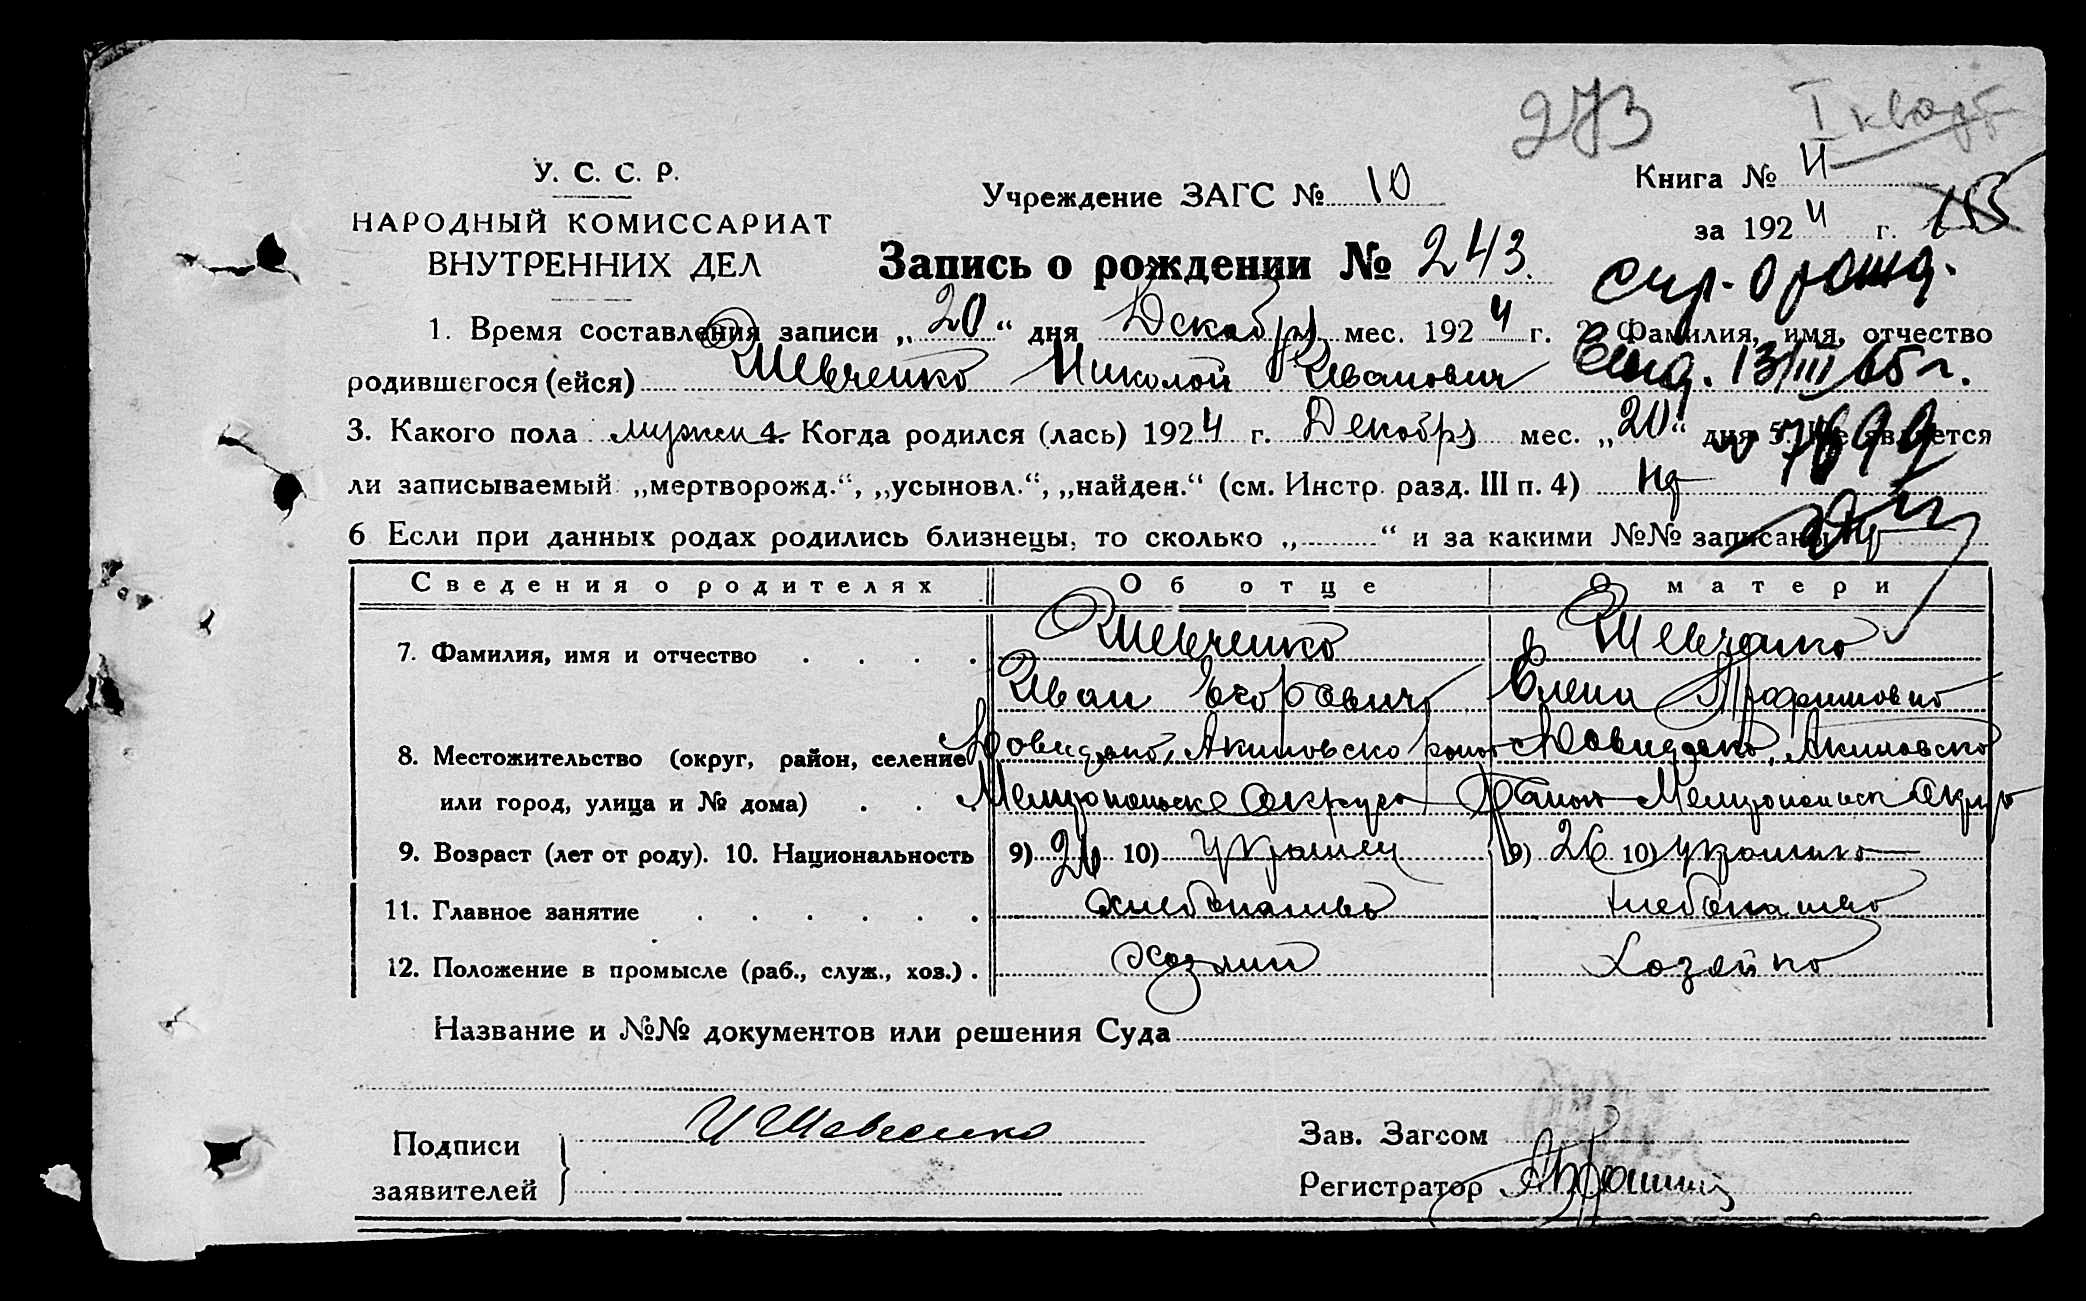 273 I кварт
У. С. С. Р.
НАРОДНЫЙ КОМИССАРИАТ
ВНУТРЕННИХ ДЕЛ
Учреждение ЗАГС № 10
Книга № 4
за 1924 г.
Запись о рождении № 243.
спр. о рожд.
1. Время составления записи „20“ дня Декабря мес. 1924 г. 2. Фамилия, имя, отчество
родившегося (ейся) Шевченко Николай Иванович
выд. 13/III 65 г.
3. Какого пола мужск 4. Когда родился (лась) 1924 г. Декабря мес. „20“ дня 5. Не является
ли записываемый „мертворожд.“, „усыновл.“, „найден.“ (см. Инстр. разд. III п. 4)
6 Если при данных родах родились близнецы, то сколько „ “ и за какими №№ записаны
Сведения о родителях Об отце О матери
7. Фамилия, имя и отчество Шевченко Шевченко
Иван Егорович Елена Трофимовна
8. Местожительство (округ, район, селение Акимовско район Акимовско
или город, улица и № дома) Мелитопольске округа район Мелитопольск округ
9. Возраст (лет от роду). 10. Национальность 9) 26 10) украинец 9) 26 10) украинка
11. Главное занятие хлебопашво хлебопашво
12. Положение в промысле (раб., служ., хоз.) Хозяин Хозяйка
Название и №№ документов или решения Суда
Подписи заявителей И Шевченко
Зав. Загсом
Регистратор